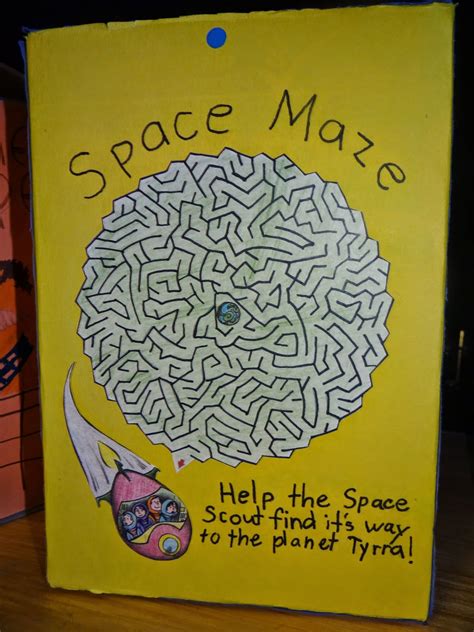 Space Maze
Help the Space
Scout find it's way
to the planet Tyrra!